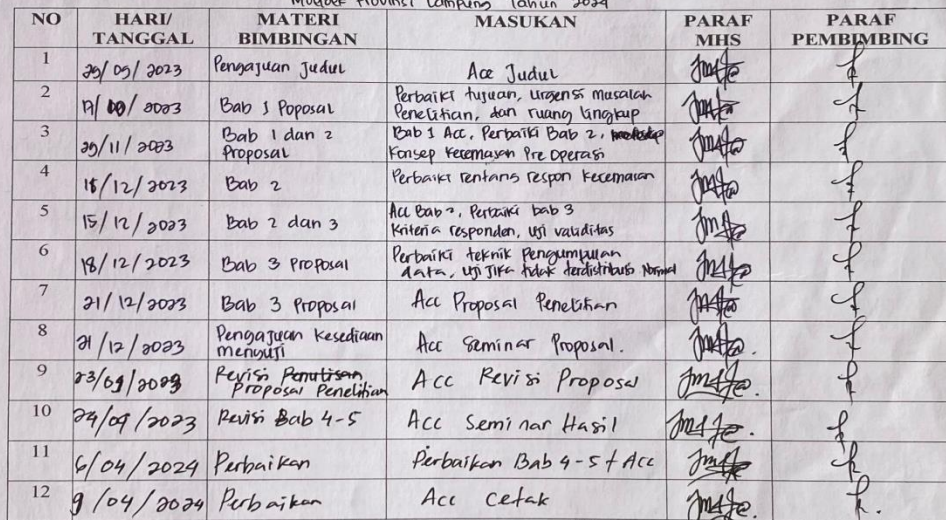 Provinsi Lampung Tahun 2024
NO HARI/ TANGGAL MATERI BIMBINGAN MASUKAN PARAF MHS PARAF PEMBIMBING
1 29/09/2023 Pengajuan Judul Acc Judul
2 17/10/2023 Bab 1 Poposal Perbaiki tujuan, urgensi masalah
Penelitian, dan ruang lingkup
3 29/11/2023 Bab 1 dan 2 Bab 1 Acc, Perbaiki Bab 2,
Proposal Konsep Kecemasan Pre Operasi
4 /12/2023 Bab 2 Perbaiki rentang respon kecemasan
5 15/12/2023 Bab 2 dan 3 Acc Bab 2, Perbaiki bab 3
Kriteria responden, uji validitas
6 18/12/2023 Bab 3 Proposal Perbaiki teknik Pengumpulan
data, uji jika tidak terdistribusi Normal
7 21/12/2023 Bab 3 Proposal Acc Proposal Penelitian
8 21/12/2023 Pengajuan Kesediaan Acc Seminar Proposal.
menguji
9 Revisi Acc Revisi Proposal
Proposal Penelitian
10 24/09/2023 Revisi Bab 4-5 Acc Seminar Hasil
11 6/04/2024 Perbaikan Perbaikan Bab 4-5 + Acc
12 9/04/2024 Perbaikan Acc cetak